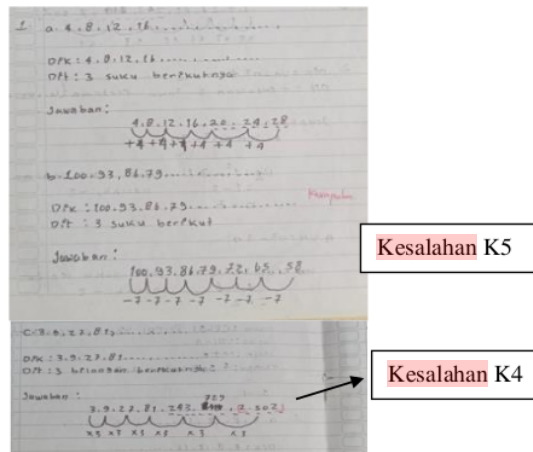 1 a. 4, 8, 12, 16, ............
DIK : 4, 8, 12, 16 ............
DIT : 3 suku berikutnya
Jawaban :
4, 8, 12, 16, 20, 24, 28
+4 +4 +4 +4 +4 +4
b. 100, 93, 86, 79 ............
DIK : 100, 93, 86, 79 ............
DIT : 3 suku berikut
Jawaban :
100, 93, 86, 79, 72, 65, 58
-7 -7 -7 -7 -7 -7 -7
Kesalahan K5
C. 3, 9, 27, 81,
DIK : 3, 9, 27, 81 ............
DIT : 3 berikutnya
Jawaban :
729
3, 9, 27, 81, 243,
x3 x3 x3 x3 x3 x3
Kesalahan K4